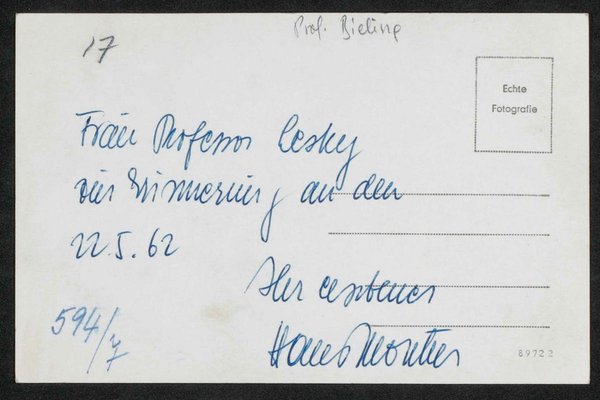 17
Prof. Bieling
Echte
Fotografie
Frau Professor Lesky
zur Erinnerung an den
22.5.62
Ihr ergebener
Hans
594/7
89722